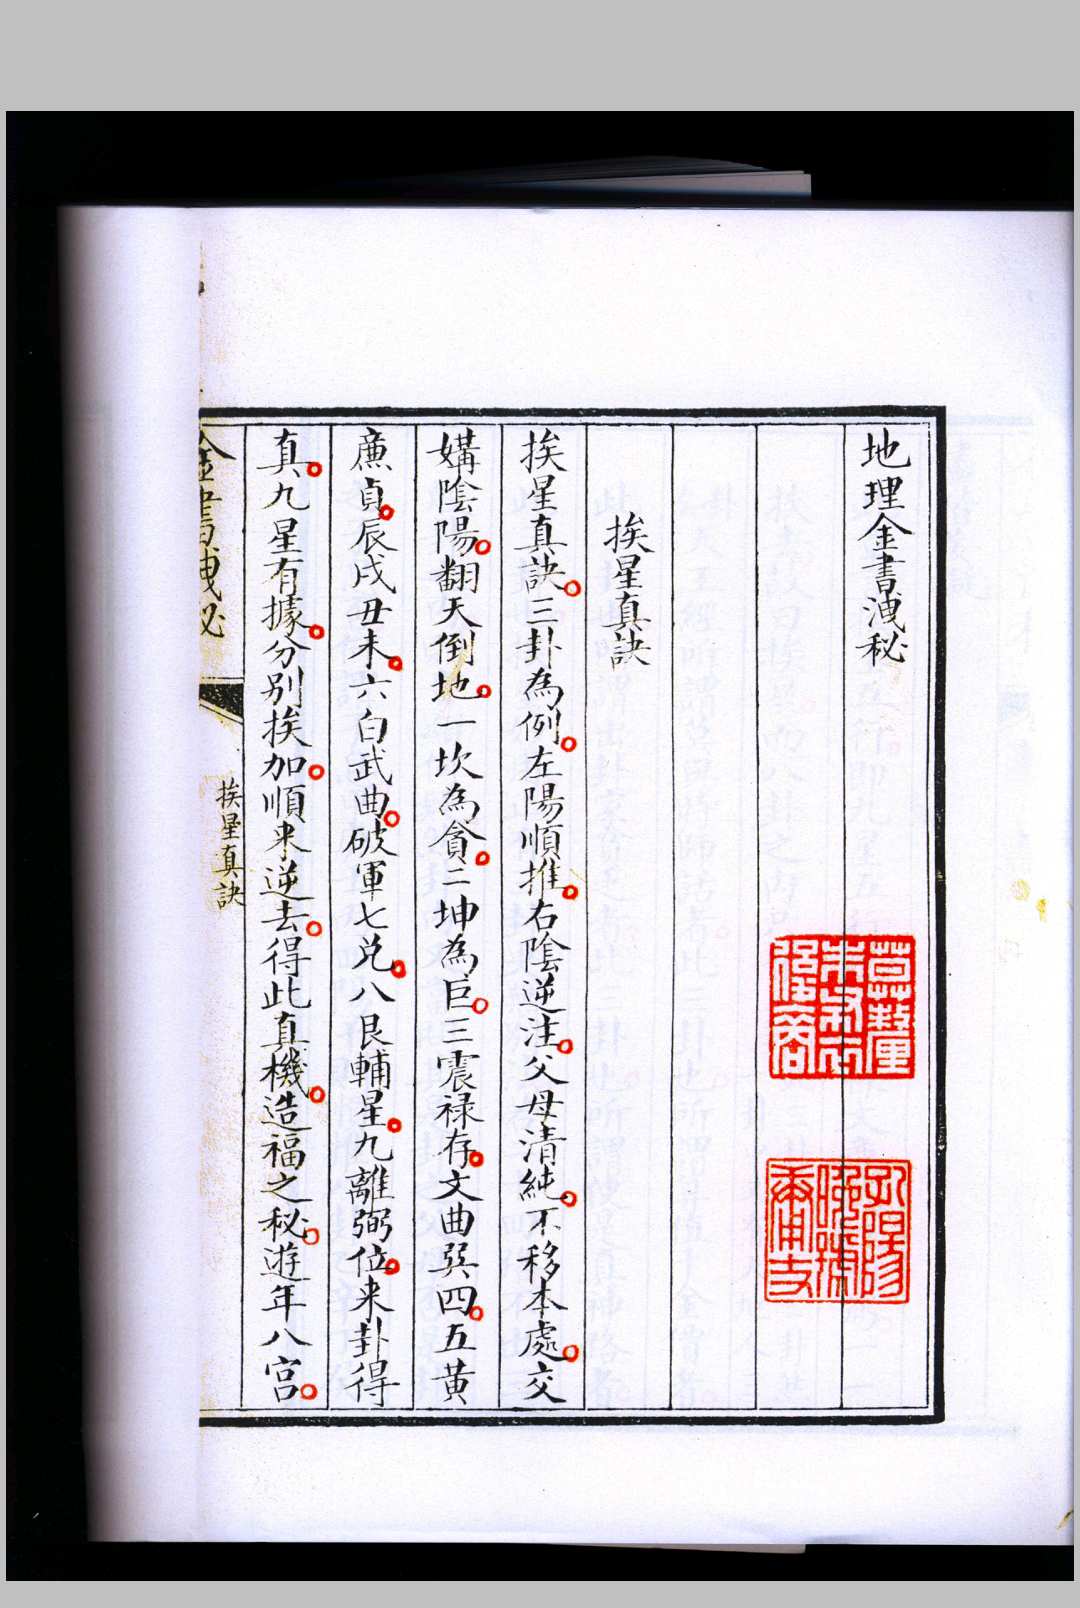 地理金書洩秘
挨星真訣
挨星真訣。三卦為例。左陽順推。右陰逆注。父母清純。不移本處。交
媾陰陽。翻天倒地。一坎為貪。二坤為巨。三震禄存。文曲巽四。五黄
廉貞。辰戌丑未。六白武曲。破軍七兌。八艮輔星。九離弼位。来卦得
真。九星有據。分別挨加。順来逆去。得此真機。造福之秘。遊年八宮。
金書洩秘
挨星真訣